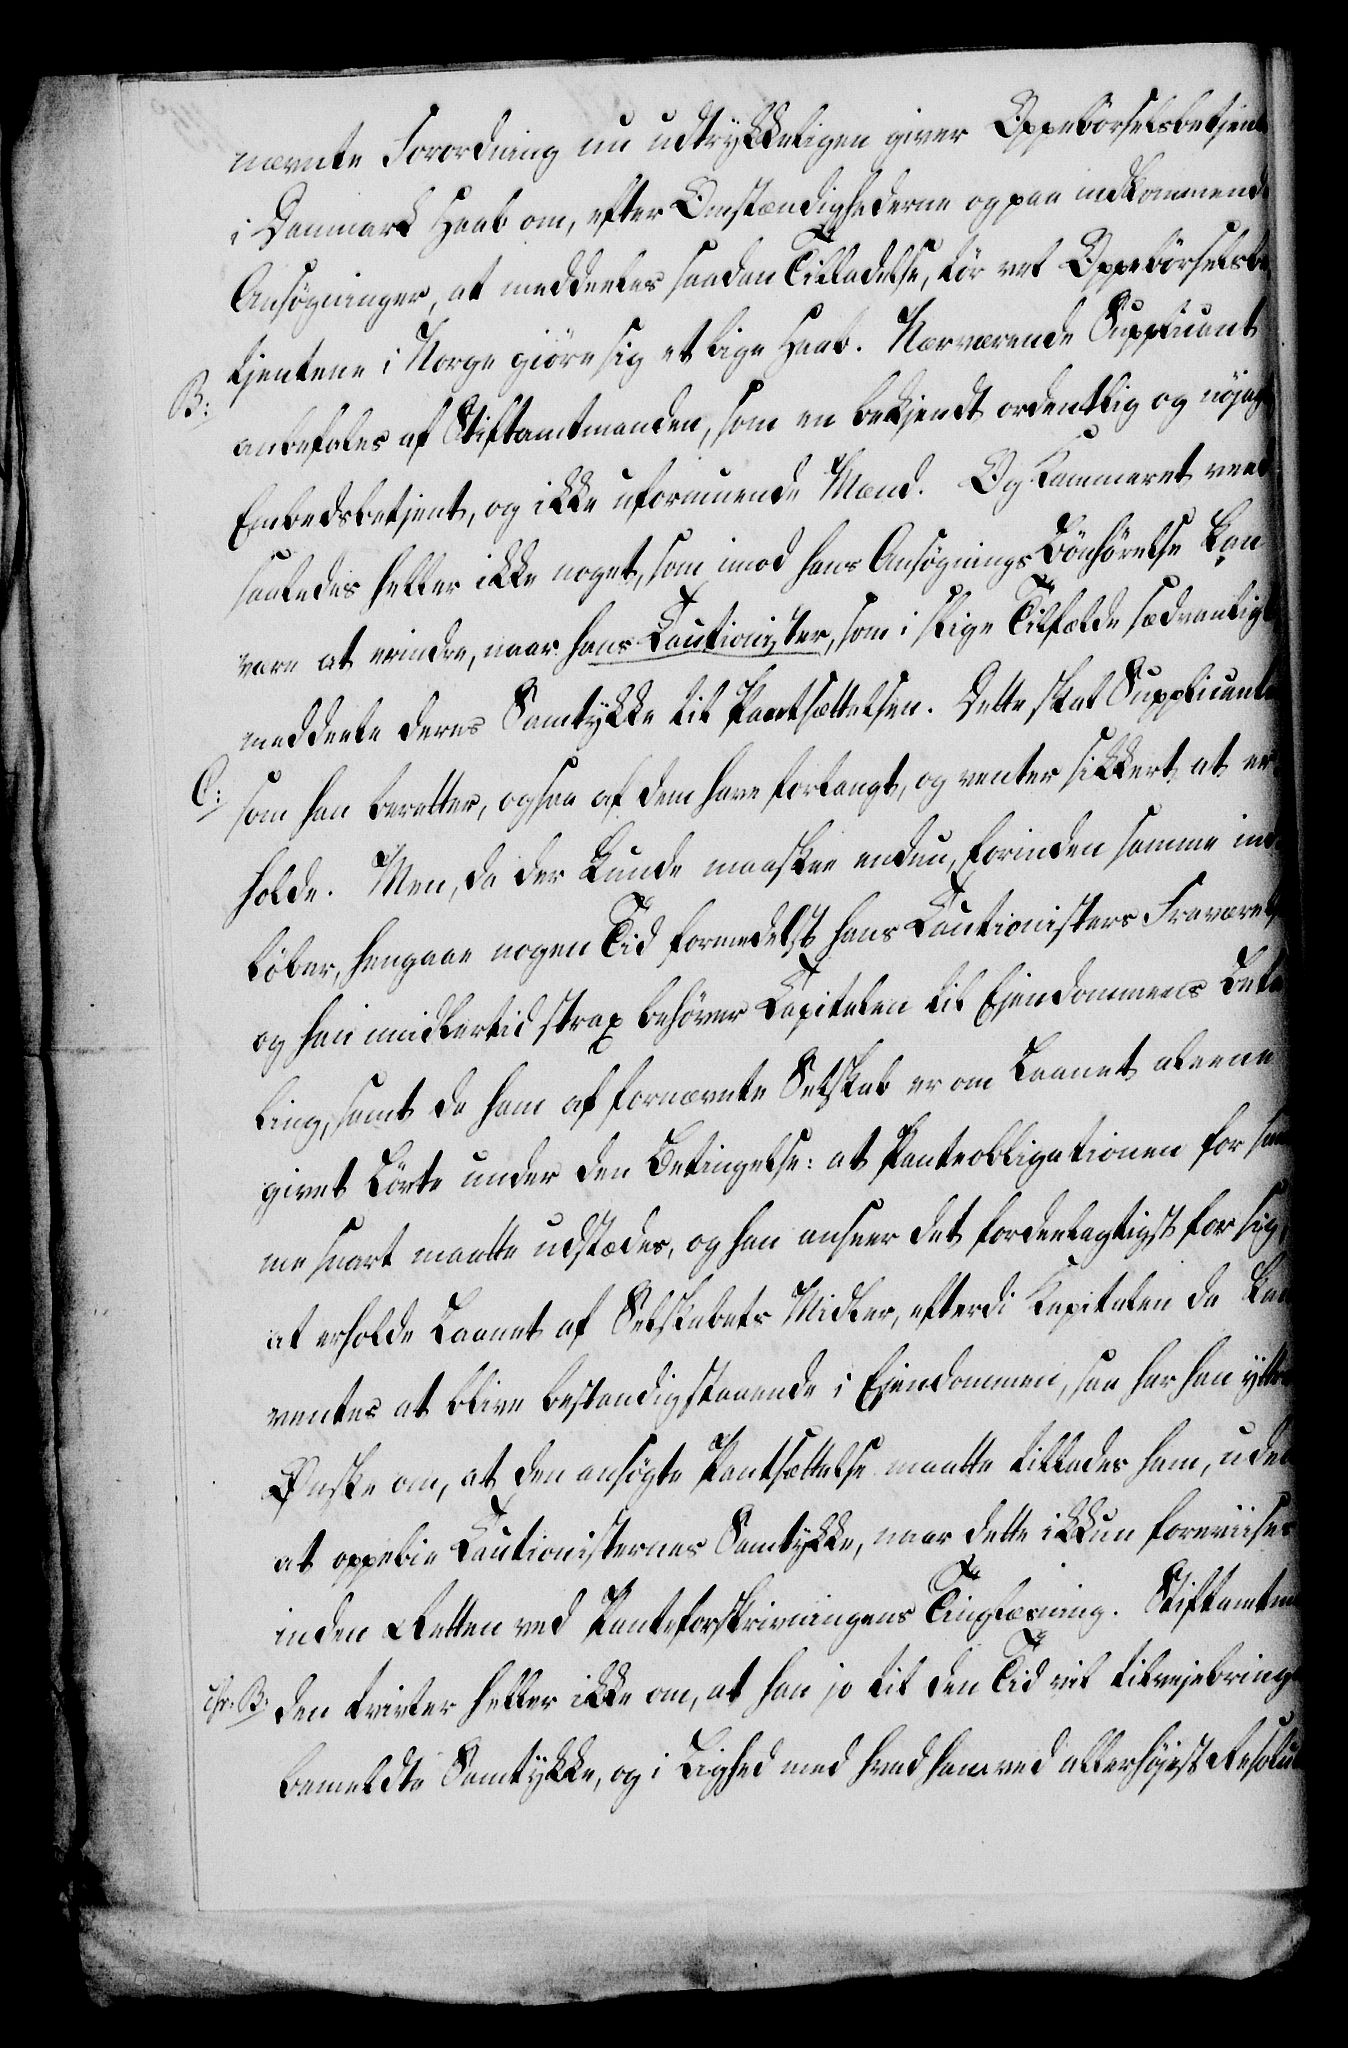 nævnte Forordning nu udtrykkeligen giver Oppebörselsbetjente
i Danmark Haab om, efter Omstændighederne og paa indkommende
Ansøgninger, at meddeeles saadan Tilladelse, tör vel Oppebörselsbe
tjentene i Norge giöre sig et lige Haab. Nærværende Supplicant
B: anbefales af Stiftamtmanden, som en bekjendt ordentlig og nöjag
Embedsbetjent, og ikke uformuende Mand. Og Kammeret veed
saaledes heller ikke noget, som imod hans Ansøgnings Bönhörelse kan
være at erindre, naar hans Cautionister, som i slige Tilfælde sædvanligt,
meddeele deres Samtykke til Pantsættelsen. Dette skal Supplicanten
C: som han beretter, ogsaa af dem have forlangt, og venter sikkert at er-
holde. Men, da der kunde maaskee endnu, forinden samme ind-
löber, hengaae nogen Tid formedelst hans Cautionisters Fraværelse
og han imidlertid strax behöver Capitalen til Ejendommens Beta
ling, samt da ham af fornævnte Selskab er om Laanet aleene
givet Löfte under den Betingelse: at Panteobligationen for sam
me snart maatte udstædes, og han anseer det fordeelagtigst for sig,
at erholde Laanet af Selskabets Midler, efterdi Capitalen da kan
ventes at blive bestandig staaende i Ejendommen, saa har han yttret
Ønske om, at den ansøgte Pantsættelse maatte tillades ham, uden
at oppebie Cautionisternes Samtykke, naar dette ikkun foreviises
inden Retten ved Panteforskrivningens Tinglæsning. Stiftamtman
B: den tvivler heller ikke om, at han jo til den Tid vil tilvejebringe
bemeldte Samtykke, og i Lighed med hvad ham ved allerhöjest Resolu